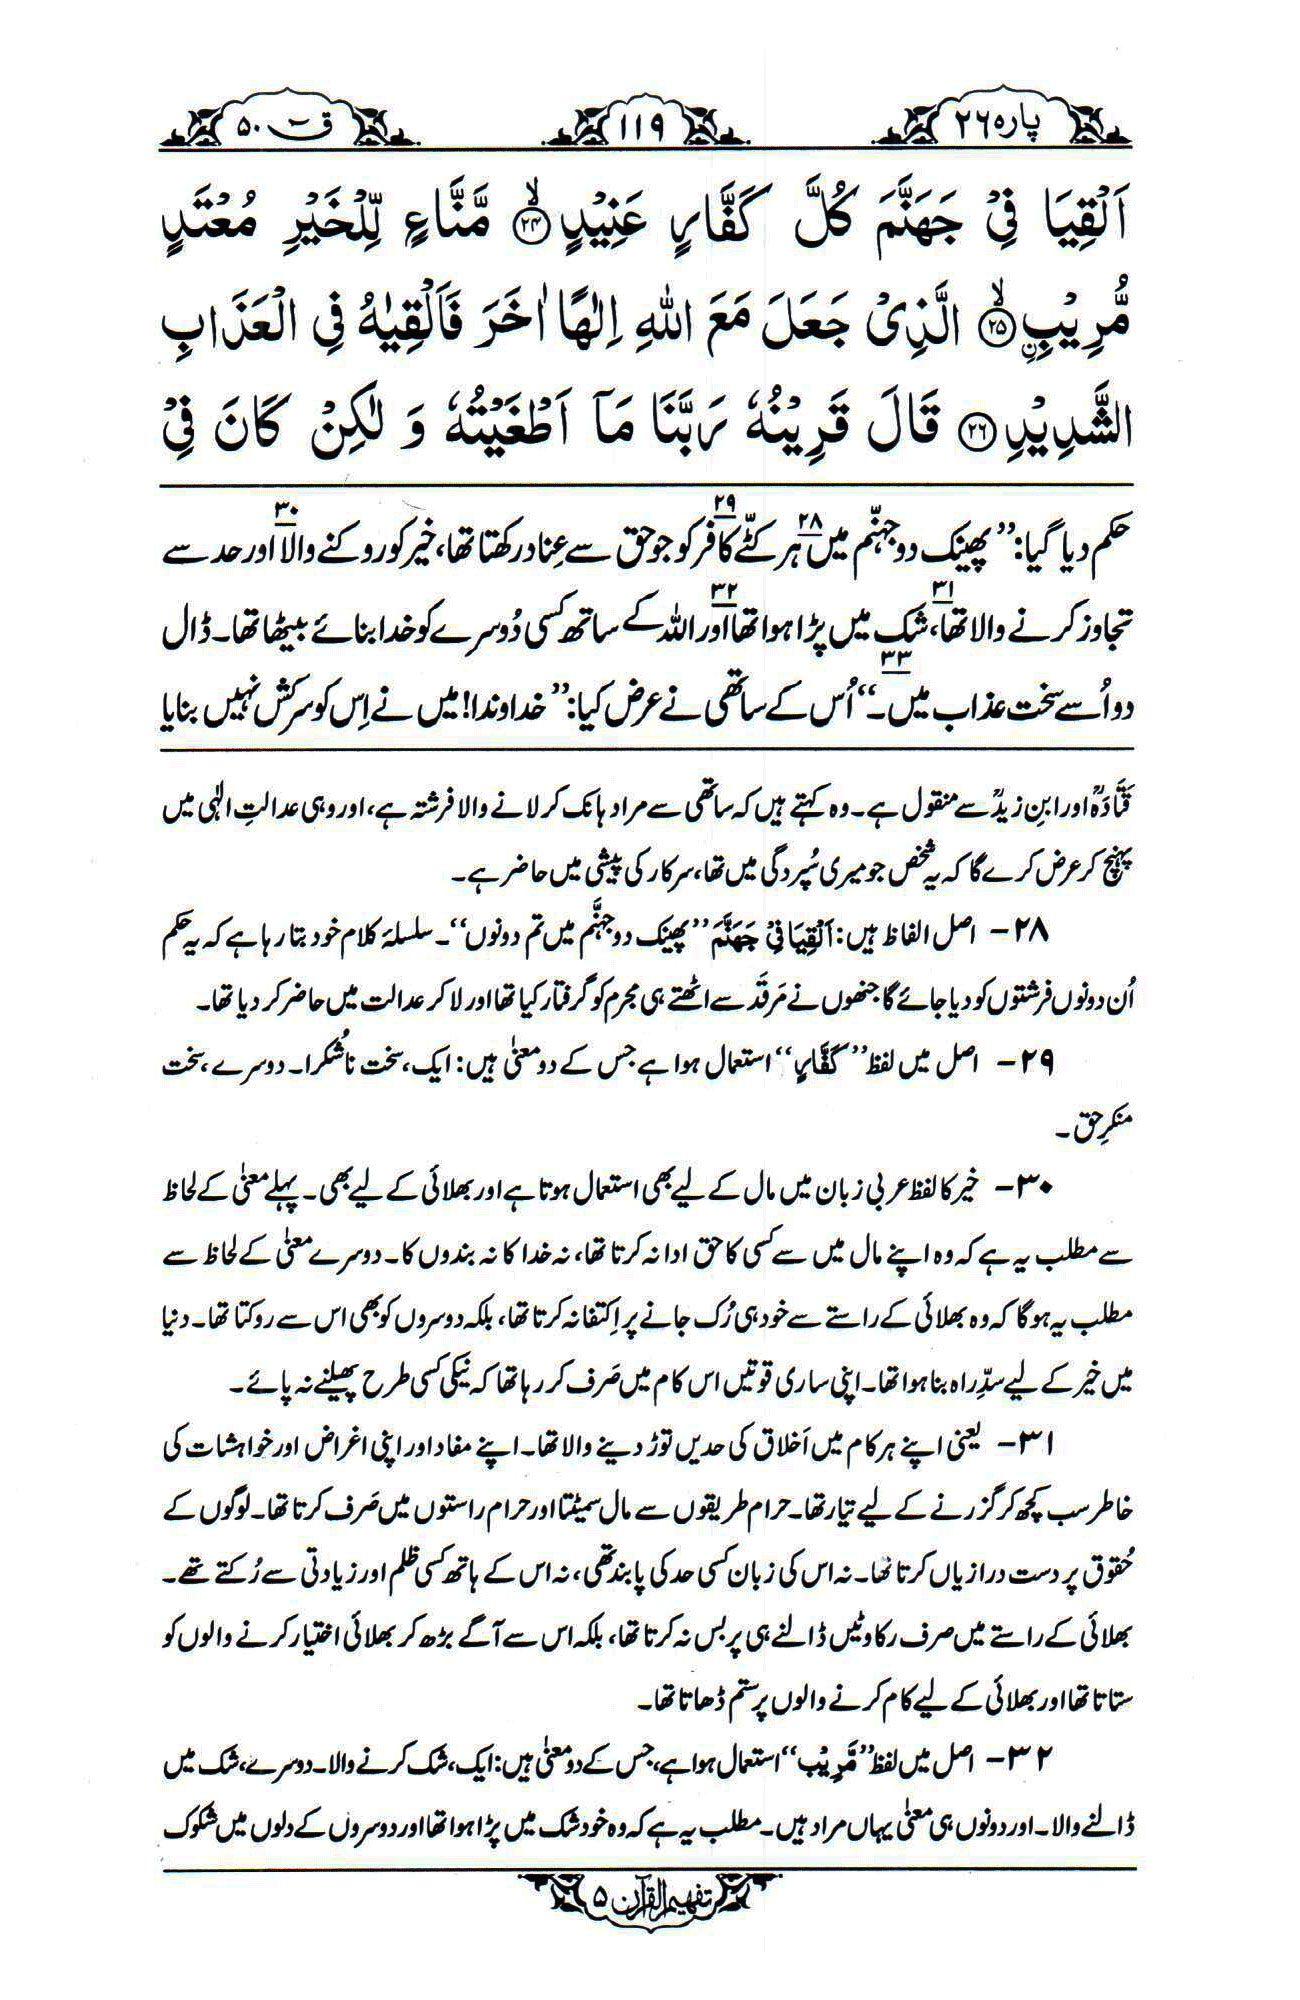 پارہ ۲۶
۱۱۹
قٓ ۵۰
اَلْقِيَا فِيْ جَهَنَّمَ كُلَّ كَفَّارٍ عَنِيْدٍ ﴿۲۴﴾ۙ مَّنَّاعٍ لِّلْخَيْرِ مُعْتَدٍ
مُّرِيْبِۙ ﴿۲۵﴾ ۨالَّذِيْ جَعَلَ مَعَ اللّٰهِ اِلٰهًا اٰخَرَ فَاَلْقِيٰهُ فِي الْعَذَابِ
الشَّدِيْدِ ﴿۲۶﴾ قَالَ قَرِيْنُهٗ رَبَّنَا مَاۤ اَطْغَيْتُهٗ وَ لٰكِنْ كَانَ فِيْ
حکم دیا گیا: ”پھینک دو جہنّم میں۲۸ ہر کٹّے کافر۲۹ کو جو حق سے عِناد رکھتا تھا، خیر کو روکنے والا۳۰ اور حد سے
تجاوز کرنے والا تھا۳۱، شک میں پڑا ہوا تھا۳۲ اور اللہ کے ساتھ کسی دُوسرے کو خدا بنائے بیٹھا تھا۔ ڈال
دو اُسے سخت عذاب میں۳۳۔“ اُس کے ساتھی نے عرض کیا: ”خداوندا! میں نے اِس کو سرکش نہیں بنایا
قَتَادَہؒ اور ابنِ زیدؒ سے منقول ہے۔ وہ کہتے ہیں کہ ساتھی سے مراد ہانک کر لانے والا فرشتہ ہے، اور وہی عدالتِ الٰہی میں
پہنچ کر عرض کرے گا کہ یہ شخص جو میری سُپردگی میں تھا، سرکار کی پیشی میں حاضر ہے۔
۲۸- اصل الفاظ ہیں: اَلْقِيَا فِيْ جَهَنَّمَ ”پھینک دو جہنَّم میں تم دونوں“۔ سلسلۂ کلام خود بتا رہا ہے کہ یہ حکم
اُن دونوں فرشتوں کو دیا جائے گا جنھوں نے مَرقَد سے اٹھتے ہی مجرم کو گرفتار کیا تھا اور لا کر عدالت میں حاضر کر دیا تھا۔
۲۹- اصل میں لفظ ”كَفَّارٍ“ استعمال ہوا ہے جس کے دو معنیٰ ہیں: ایک، سخت ناشُکرا۔ دوسرے، سخت
منکرِ حق۔
۳۰- خیر کا لفظ عربی زبان میں مال کے لیے بھی استعمال ہوتا ہے اور بھلائی کے لیے بھی۔ پہلے معنیٰ کے لحاظ
سے مطلب یہ ہے کہ وہ اپنے مال میں سے کسی کا حق ادا نہ کرتا تھا، نہ خدا کا نہ بندوں کا۔ دوسرے معنیٰ کے لحاظ سے
مطلب یہ ہوگا کہ وہ بھلائی کے راستے سے خود ہی رُک جانے پر اِکتفا نہ کرتا تھا، بلکہ دوسروں کو بھی اس سے روکتا تھا۔ دنیا
میں خیر کے لیے سدِّ راہ بنا ہوا تھا۔ اپنی ساری قوتیں اس کام میں صَرف کر رہا تھا کہ نیکی کسی طرح پھیلنے نہ پائے۔
۳۱- یعنی اپنے ہر کام میں اَخلاق کی حدیں توڑ دینے والا تھا۔ اپنے مفاد اور اپنی اغراض اور خواہشات کی
خاطر سب کچھ کر گزرنے کے لیے تیار تھا۔ حرام طریقوں سے مال سمیٹتا اور حرام راستوں میں صَرف کرتا تھا۔ لوگوں کے
حُقوق پر دست درازیاں کرتا تھا۔ نہ اس کی زبان کسی حد کی پابند تھی، نہ اس کے ہاتھ کسی ظلم اور زیادتی سے رُکتے تھے۔
بھلائی کے راستے میں صرف رکاوٹیں ڈالنے ہی پر بس نہ کرتا تھا، بلکہ اس سے آگے بڑھ کر بھلائی اختیار کرنے والوں کو
ستاتا تھا اور بھلائی کے لیے کام کرنے والوں پر ستم ڈھاتا تھا۔
۳۲- اصل میں لفظ ”مُّرِيْب“ استعمال ہوا ہے، جس کے دو معنیٰ ہیں: ایک، شک کرنے والا۔ دوسرے، شک میں
ڈالنے والا۔ اور دونوں ہی معنیٰ یہاں مراد ہیں۔ مطلب یہ ہے کہ وہ خود شک میں پڑا ہوا تھا اور دوسروں کے دلوں میں شکوک
تفہیم القرآن ۵